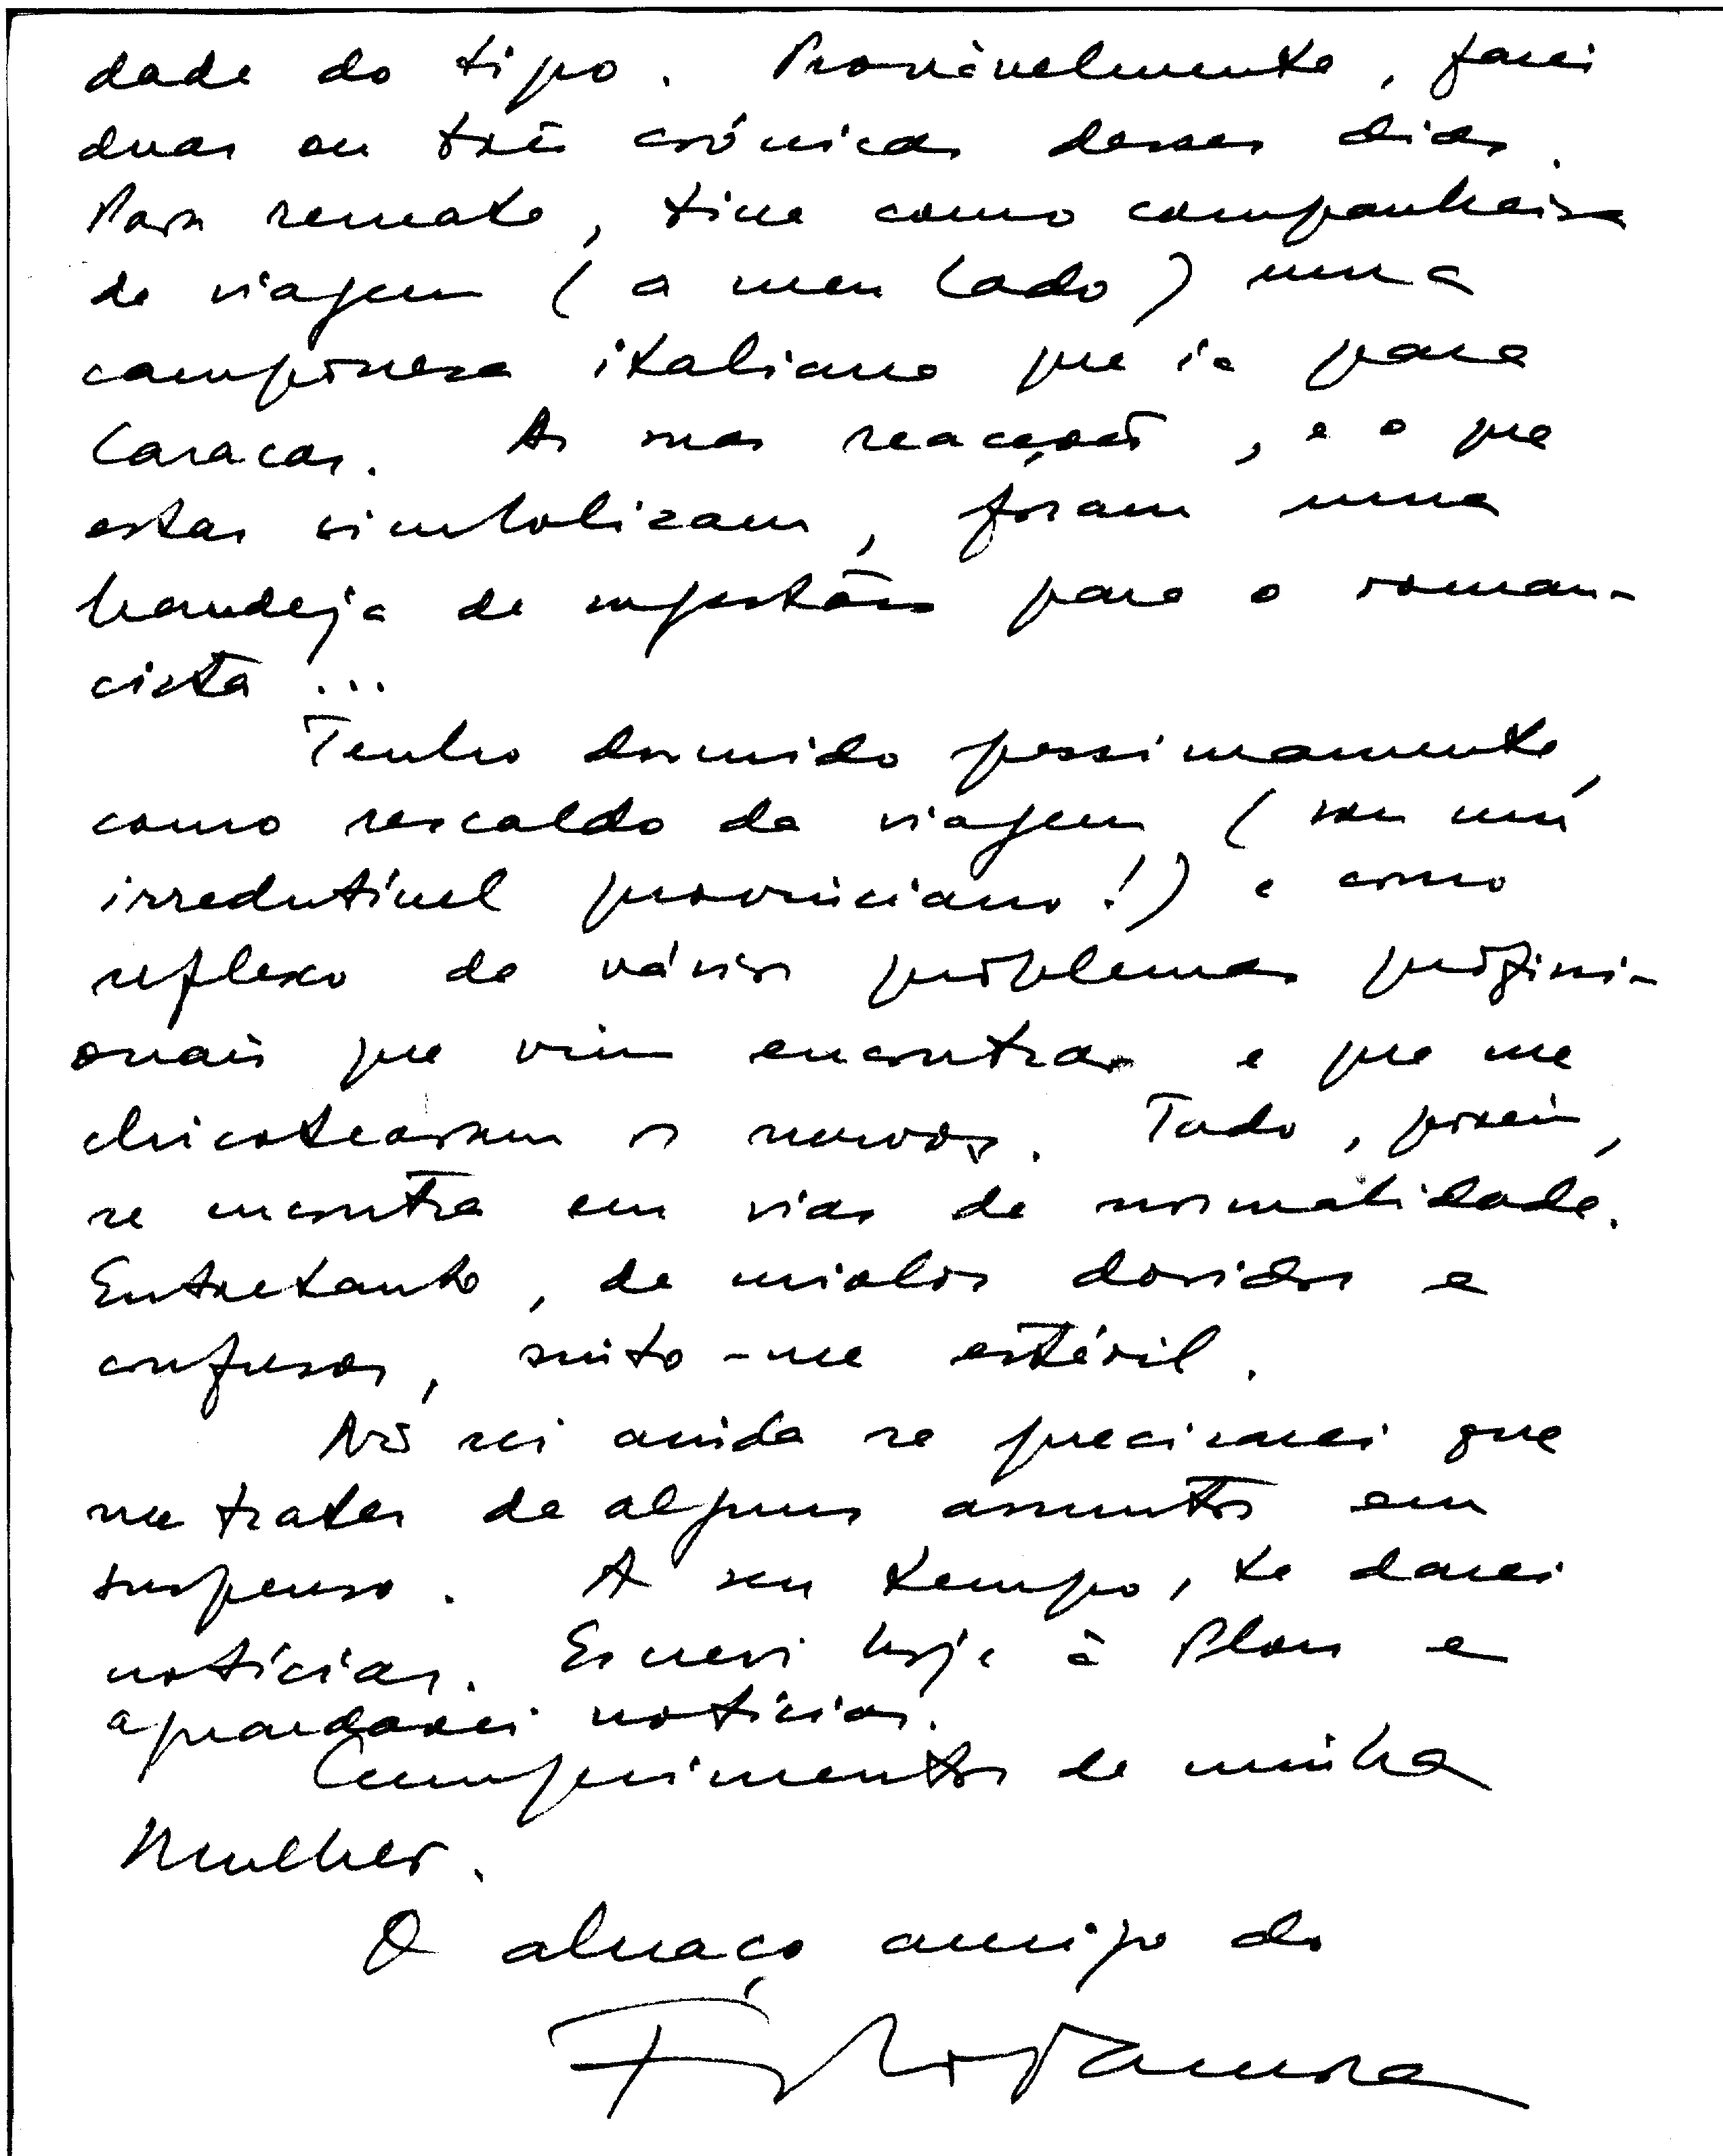 dade do tipo. Provàvelmente, farei
duas ou três crónicas desses dias.
Para remate, tive como companheira
de viagem (a meu lado) uma
camponesa italiana que ia para
Caracas. As suas reacções, e o que
estas simbolizam, foram uma
bandeja de sugestões para o roman-
cista...
Tenho dormido pessimamente,
como rescaldo da viagem (sou um
irredutível provinciano!) e como
reflexo de vários problemas profissi-
onais que vim encontrar e que me
chicotearam os nervos. Tudo, porém,
se encontra em vias de normalidade.
Entretanto, de miolos doridos e
confusos, sinto-me estéril.
Não sei ainda se precisarei que
me trates de alguns assuntos em
suspenso. A seu tempo, te darei
notícias. Escrevi hoje à Plon e
aguardarei notícias.
Cumprimentos de minha
Mulher.
O abraço amigo do